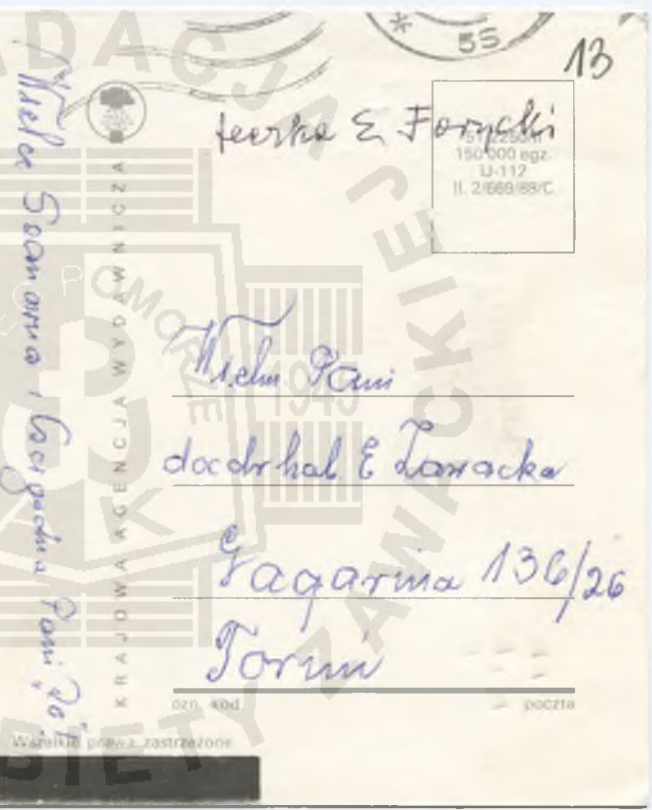 55
13
teczka E Forycki
150 000 egz.
U-112
II. 2/669/89/C
Wielm. Pani
doc dr hab E Zawacka
Gagarina 136/26
Toruń
ozn. kod
poczta
KRAJOWA AGENCJA WYDAWNICZA
Wielce Szanowna i Czcigodna Pani "Zo"!
Wszelkie prawa zastrzeżone
POMORZE
1945
AK
ZAWACKIEJ